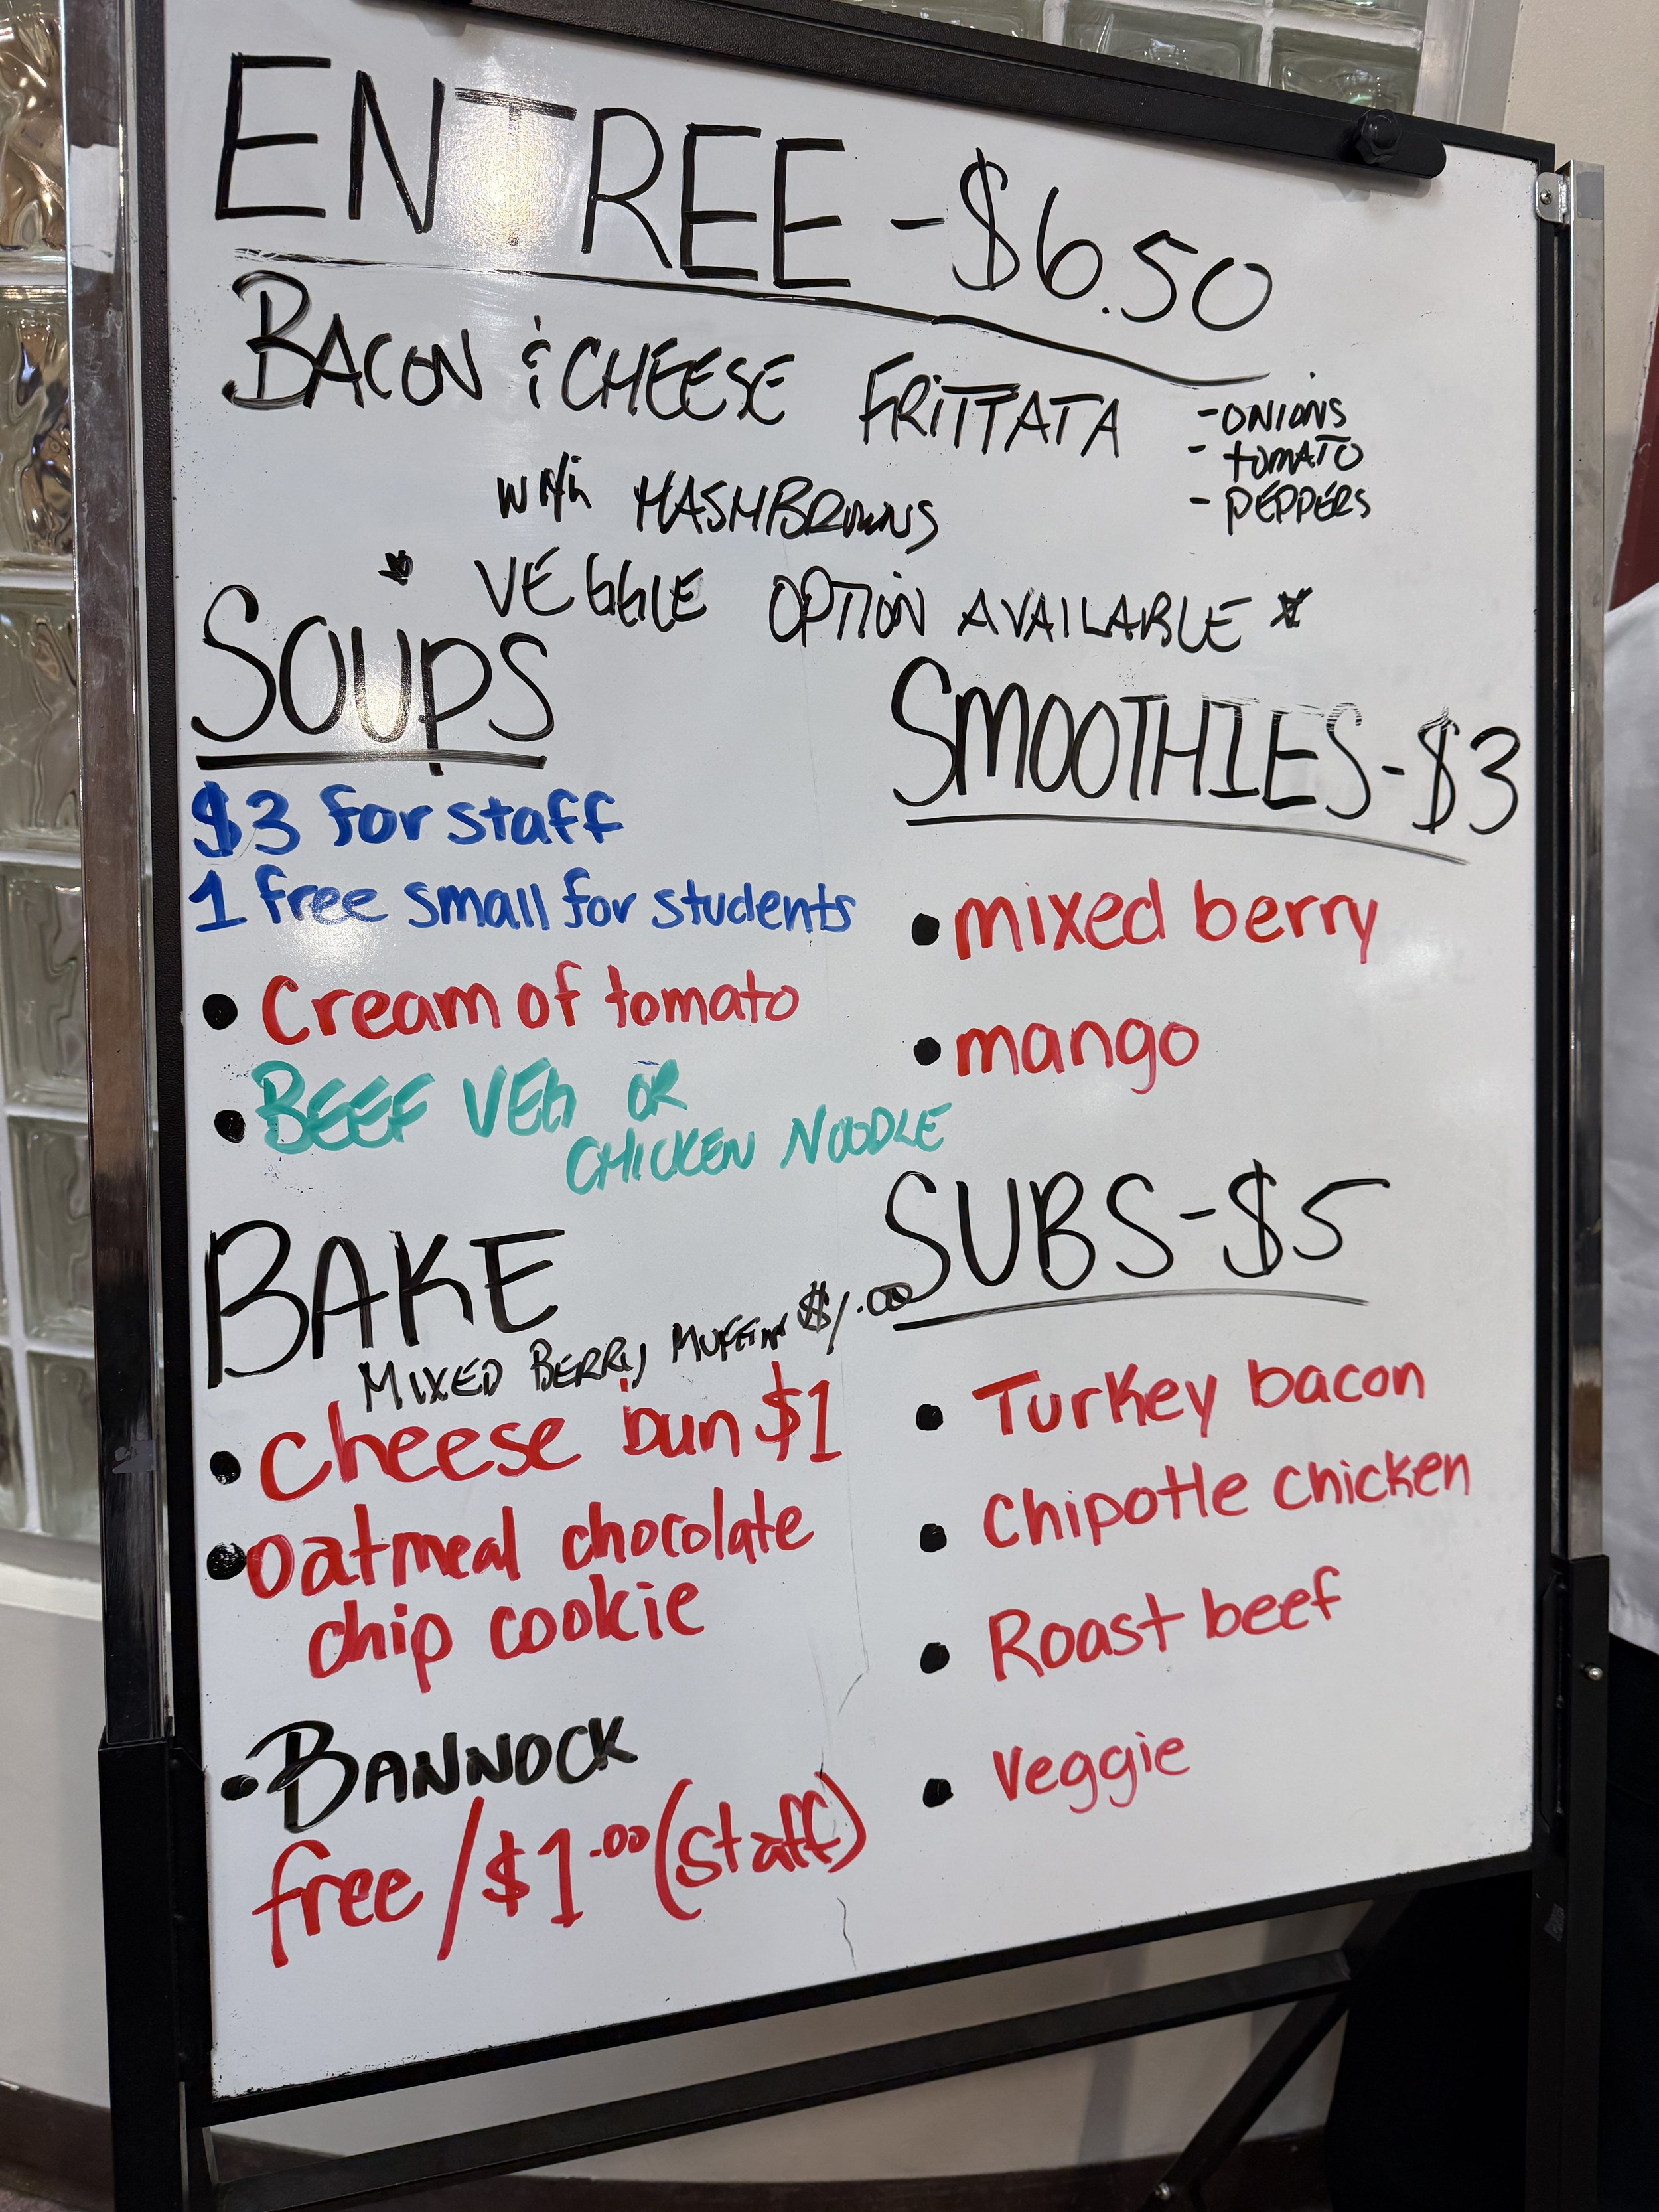 ENTREE - $6.50
BACON & CHEESE FRITTATA
- ONIONS
- TOMATO
- PEPPERS
with HASHBROWNS
* VEGGIE OPTION AVAILABLE *
SOUPS
$3 for staff
1 free small for students
• Cream of tomato
• BEEF VEG OR
CHICKEN NOODLE
SMOOTHIES - $3
• mixed berry
• mango
BAKE
MIXED BERRY MUFFIN $1.00
• Cheese bun $1
• Oatmeal chocolate
chip cookie
• BANNOCK
free / $1.00 (staff)
SUBS - $5
• Turkey bacon
• Chipotle chicken
• Roast beef
• Veggie